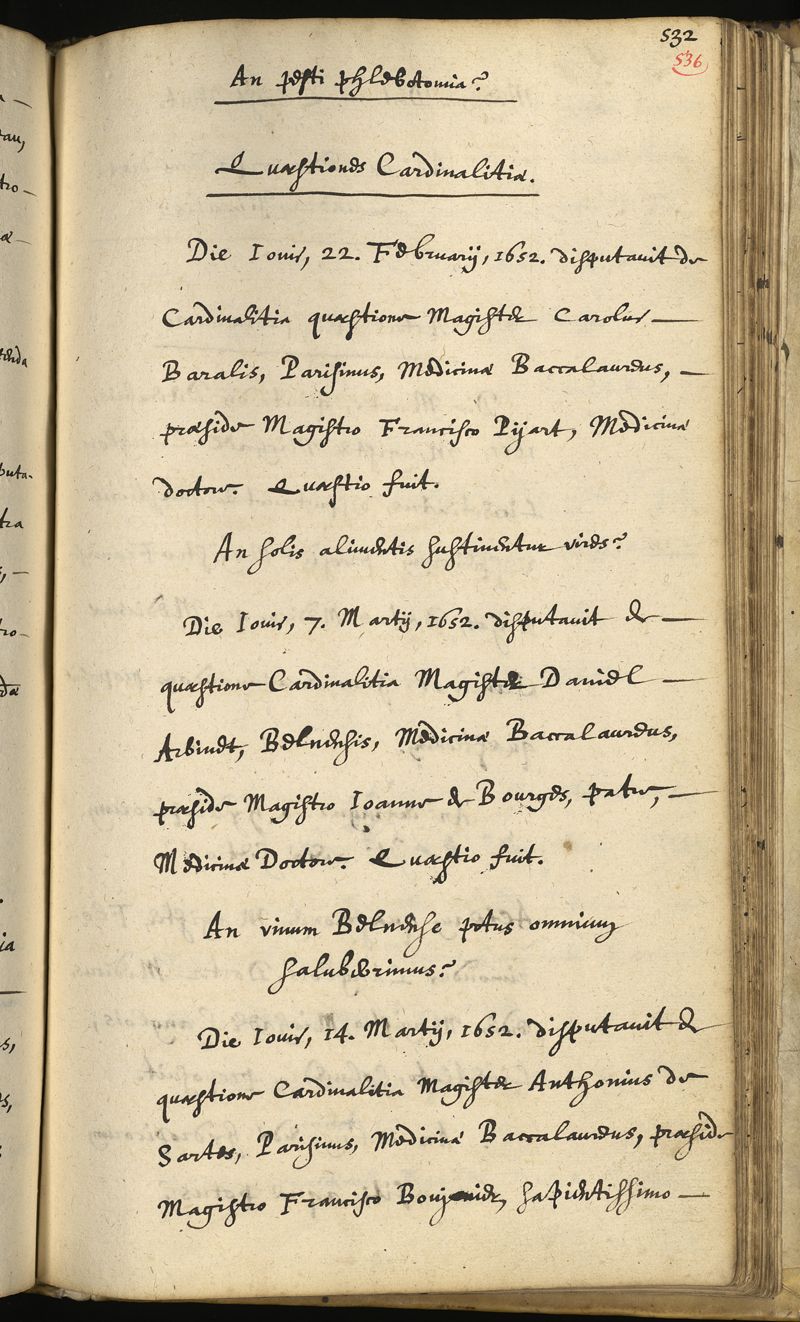 532
536
An pesti phlebotomia?
Quæstiones Cardinalitiæ.
Die Iouis, 22. Februarij, 1652. disputauit de
Cardinalitia quæstione Magister Carolus —
Baralis, Parisinus, Medicinæ Baccalaureus, —
præside Magistro Francisco Pijart, Medicinæ
doctore. Quæstio fuit.
An solis alimentis sustinentur vires?
Die Iouis, 7. Martij, 1652. disputauit de —
quæstione Cardinalitia Magister Daniel —
Arbinet, Belnensis, Medicinæ Baccalaureus,
præside Magistro Ioanne de Bourges, patre, —
Medicinæ Doctore. Quæstio fuit.
An vinum Belnense potus omnium
saluberrimus?
Die Iouis, 14. Martij, 1652. disputauit de
quæstione Cardinalitia Magister Anthonius de
Sartes, Parisinus, Medicinæ Baccalaureus, præside
Magistro Francisco sapientissimo —
tenda
puta-
tra